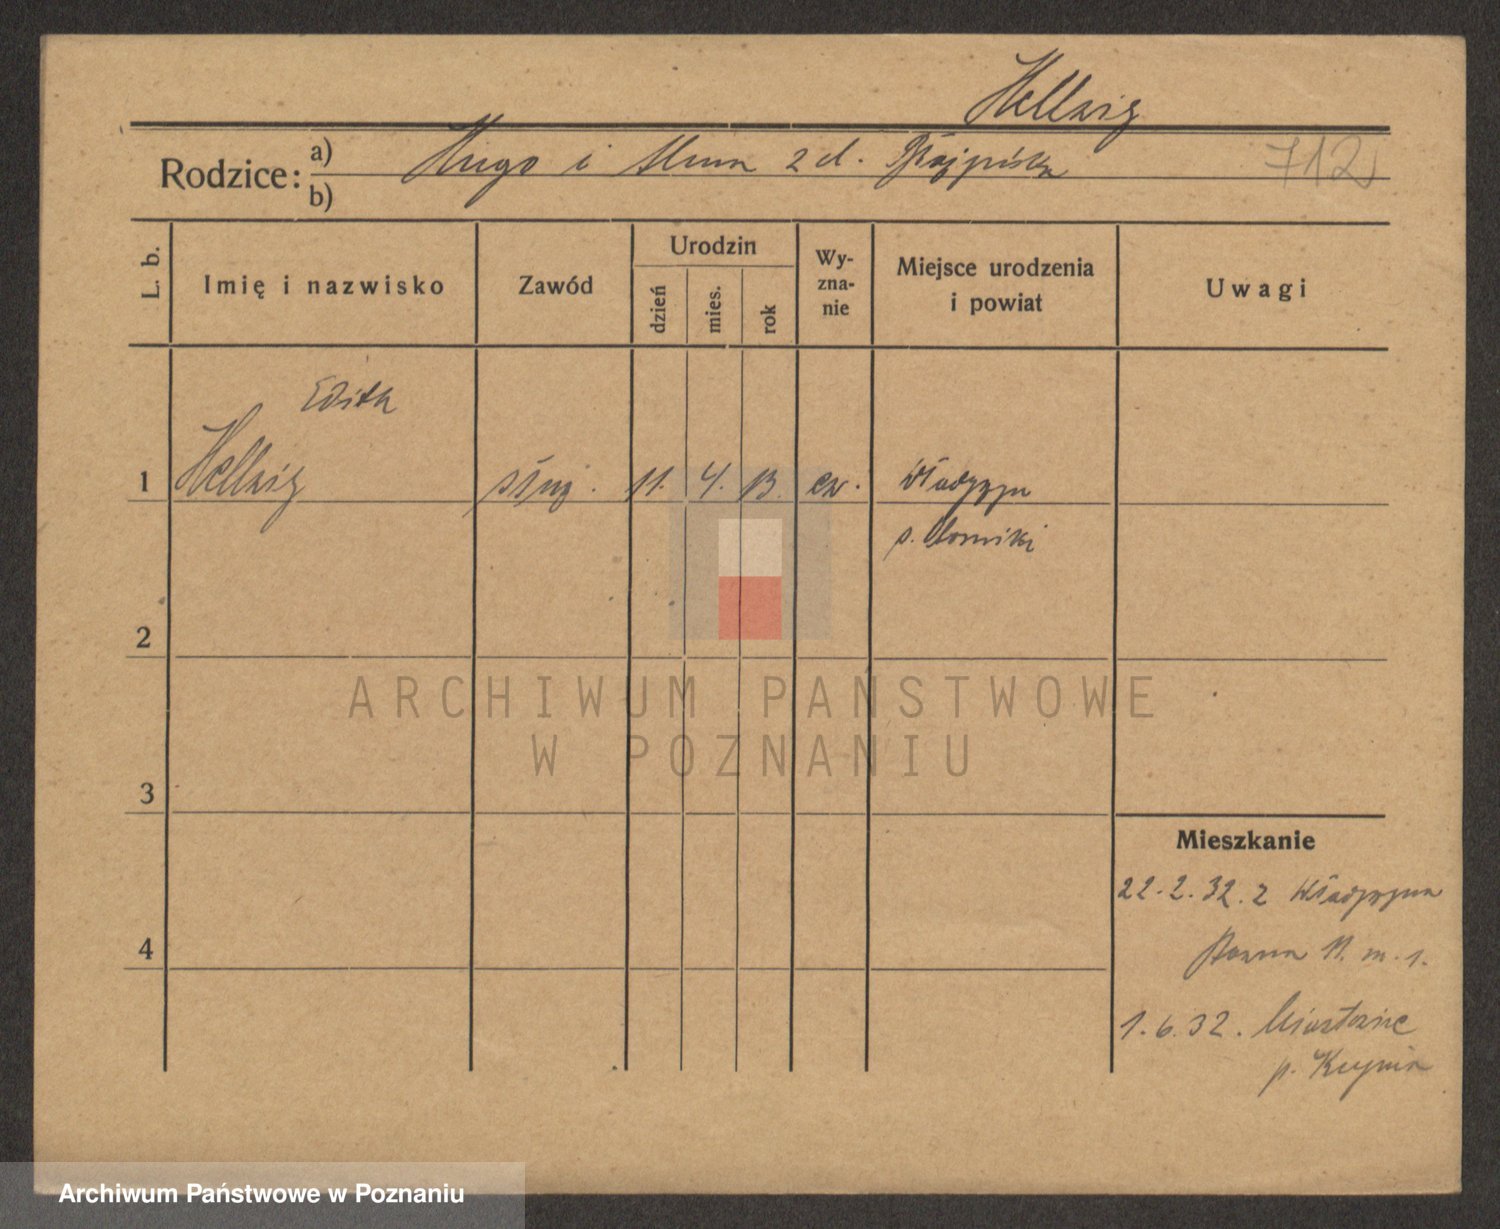 Hellwig
Rodzice: a) Hugo i Anna z d.
b)
712
L. b.
Imię i nazwisko
Zawód
Urodzin
dzień
mies.
rok
Wy-
zna-
nie
Miejsce urodzenia
i powiat
Uwagi
Edith
1 Hellwig służ. 11. 4. 13. ew.
2
3
4
Mieszkanie
22.2.32. z
11. m. 1.
1.6.32.
p. Kcynia
ARCHIWUM PAŃSTWOWE
W POZNANIU
Archiwum Państwowe w Poznaniu